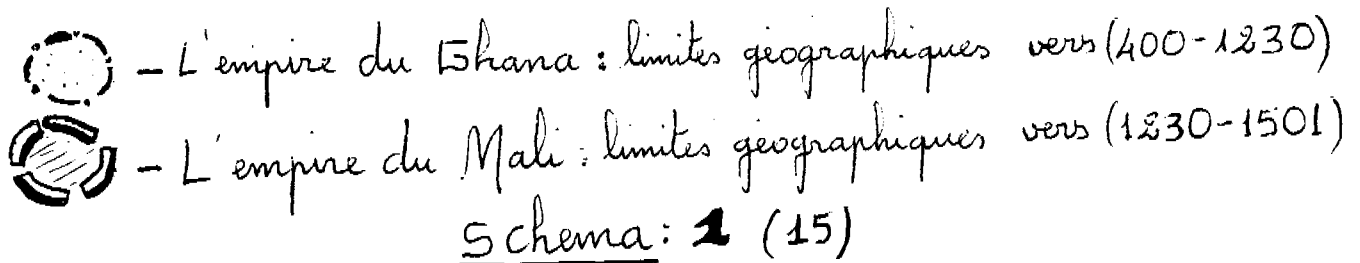 - L'empire du Ghana : limites géographiques vers (400-1230)
- L'empire du Mali : limites géographiques vers (1230-1501)
Schema: 1 (15)